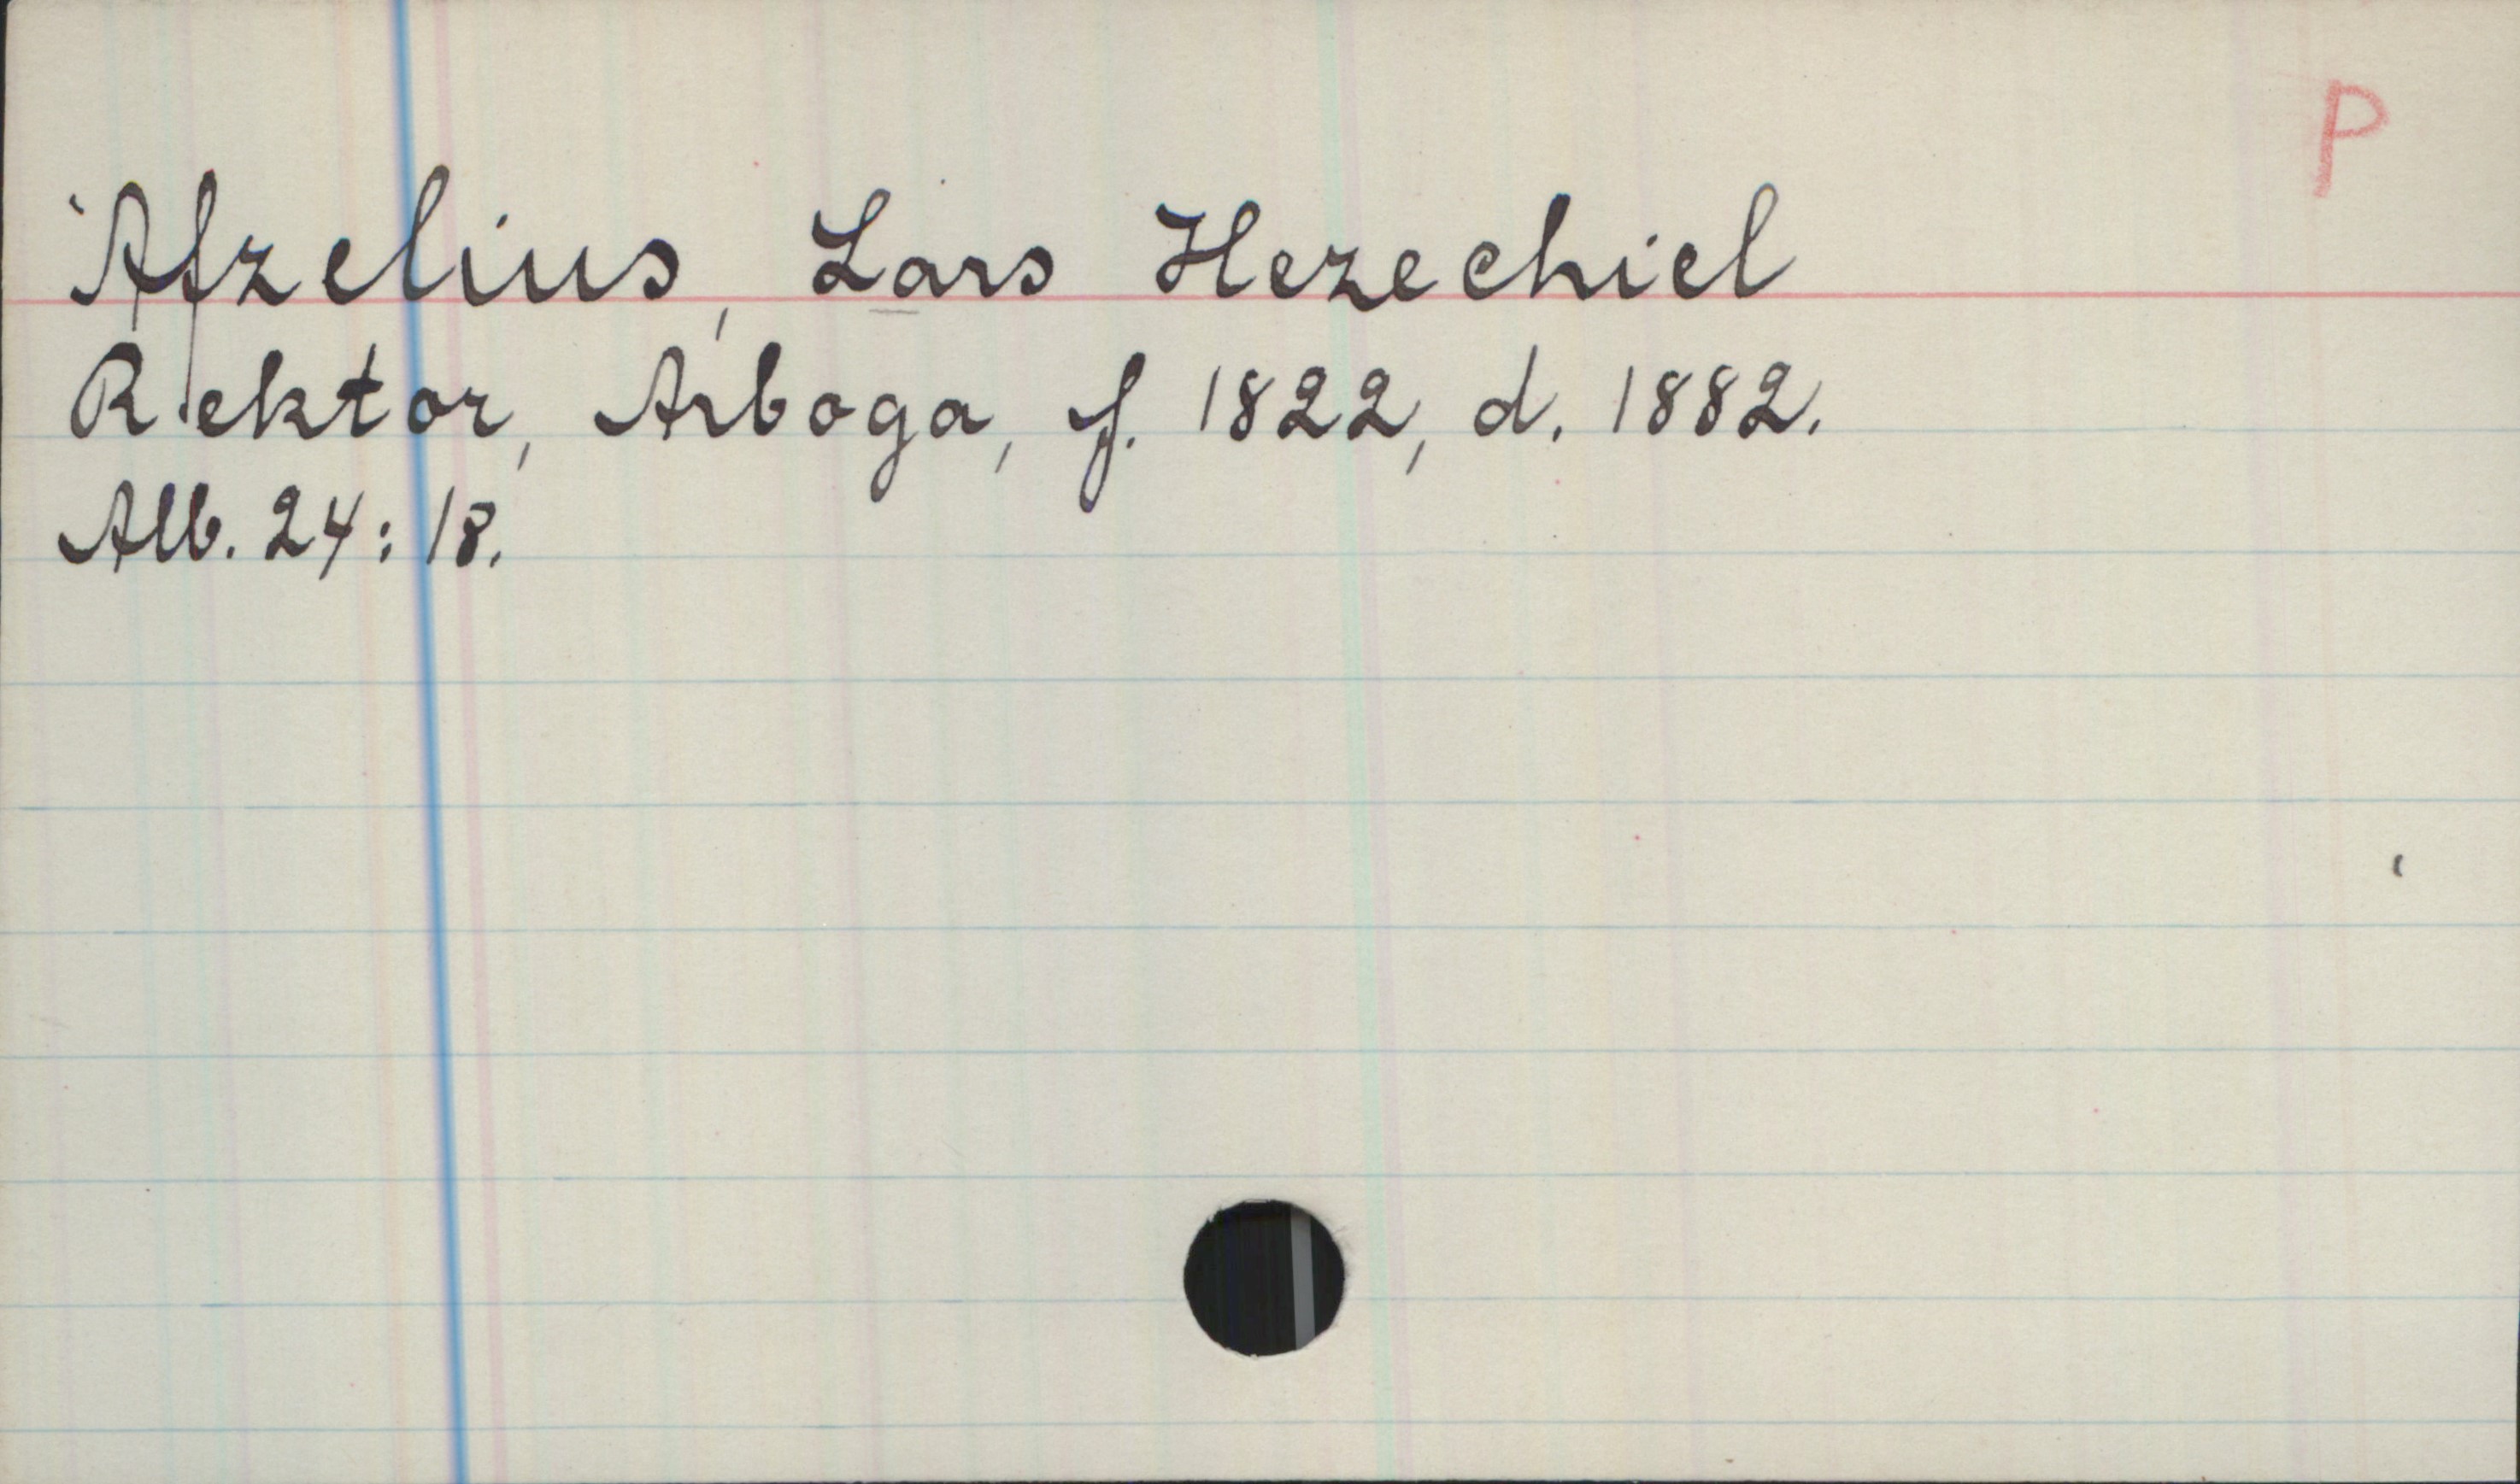 P
Afzelius, Lars Hezechiel
Rektor, Arboga, f. 1822, d. 1882.
Alb. 24:18.